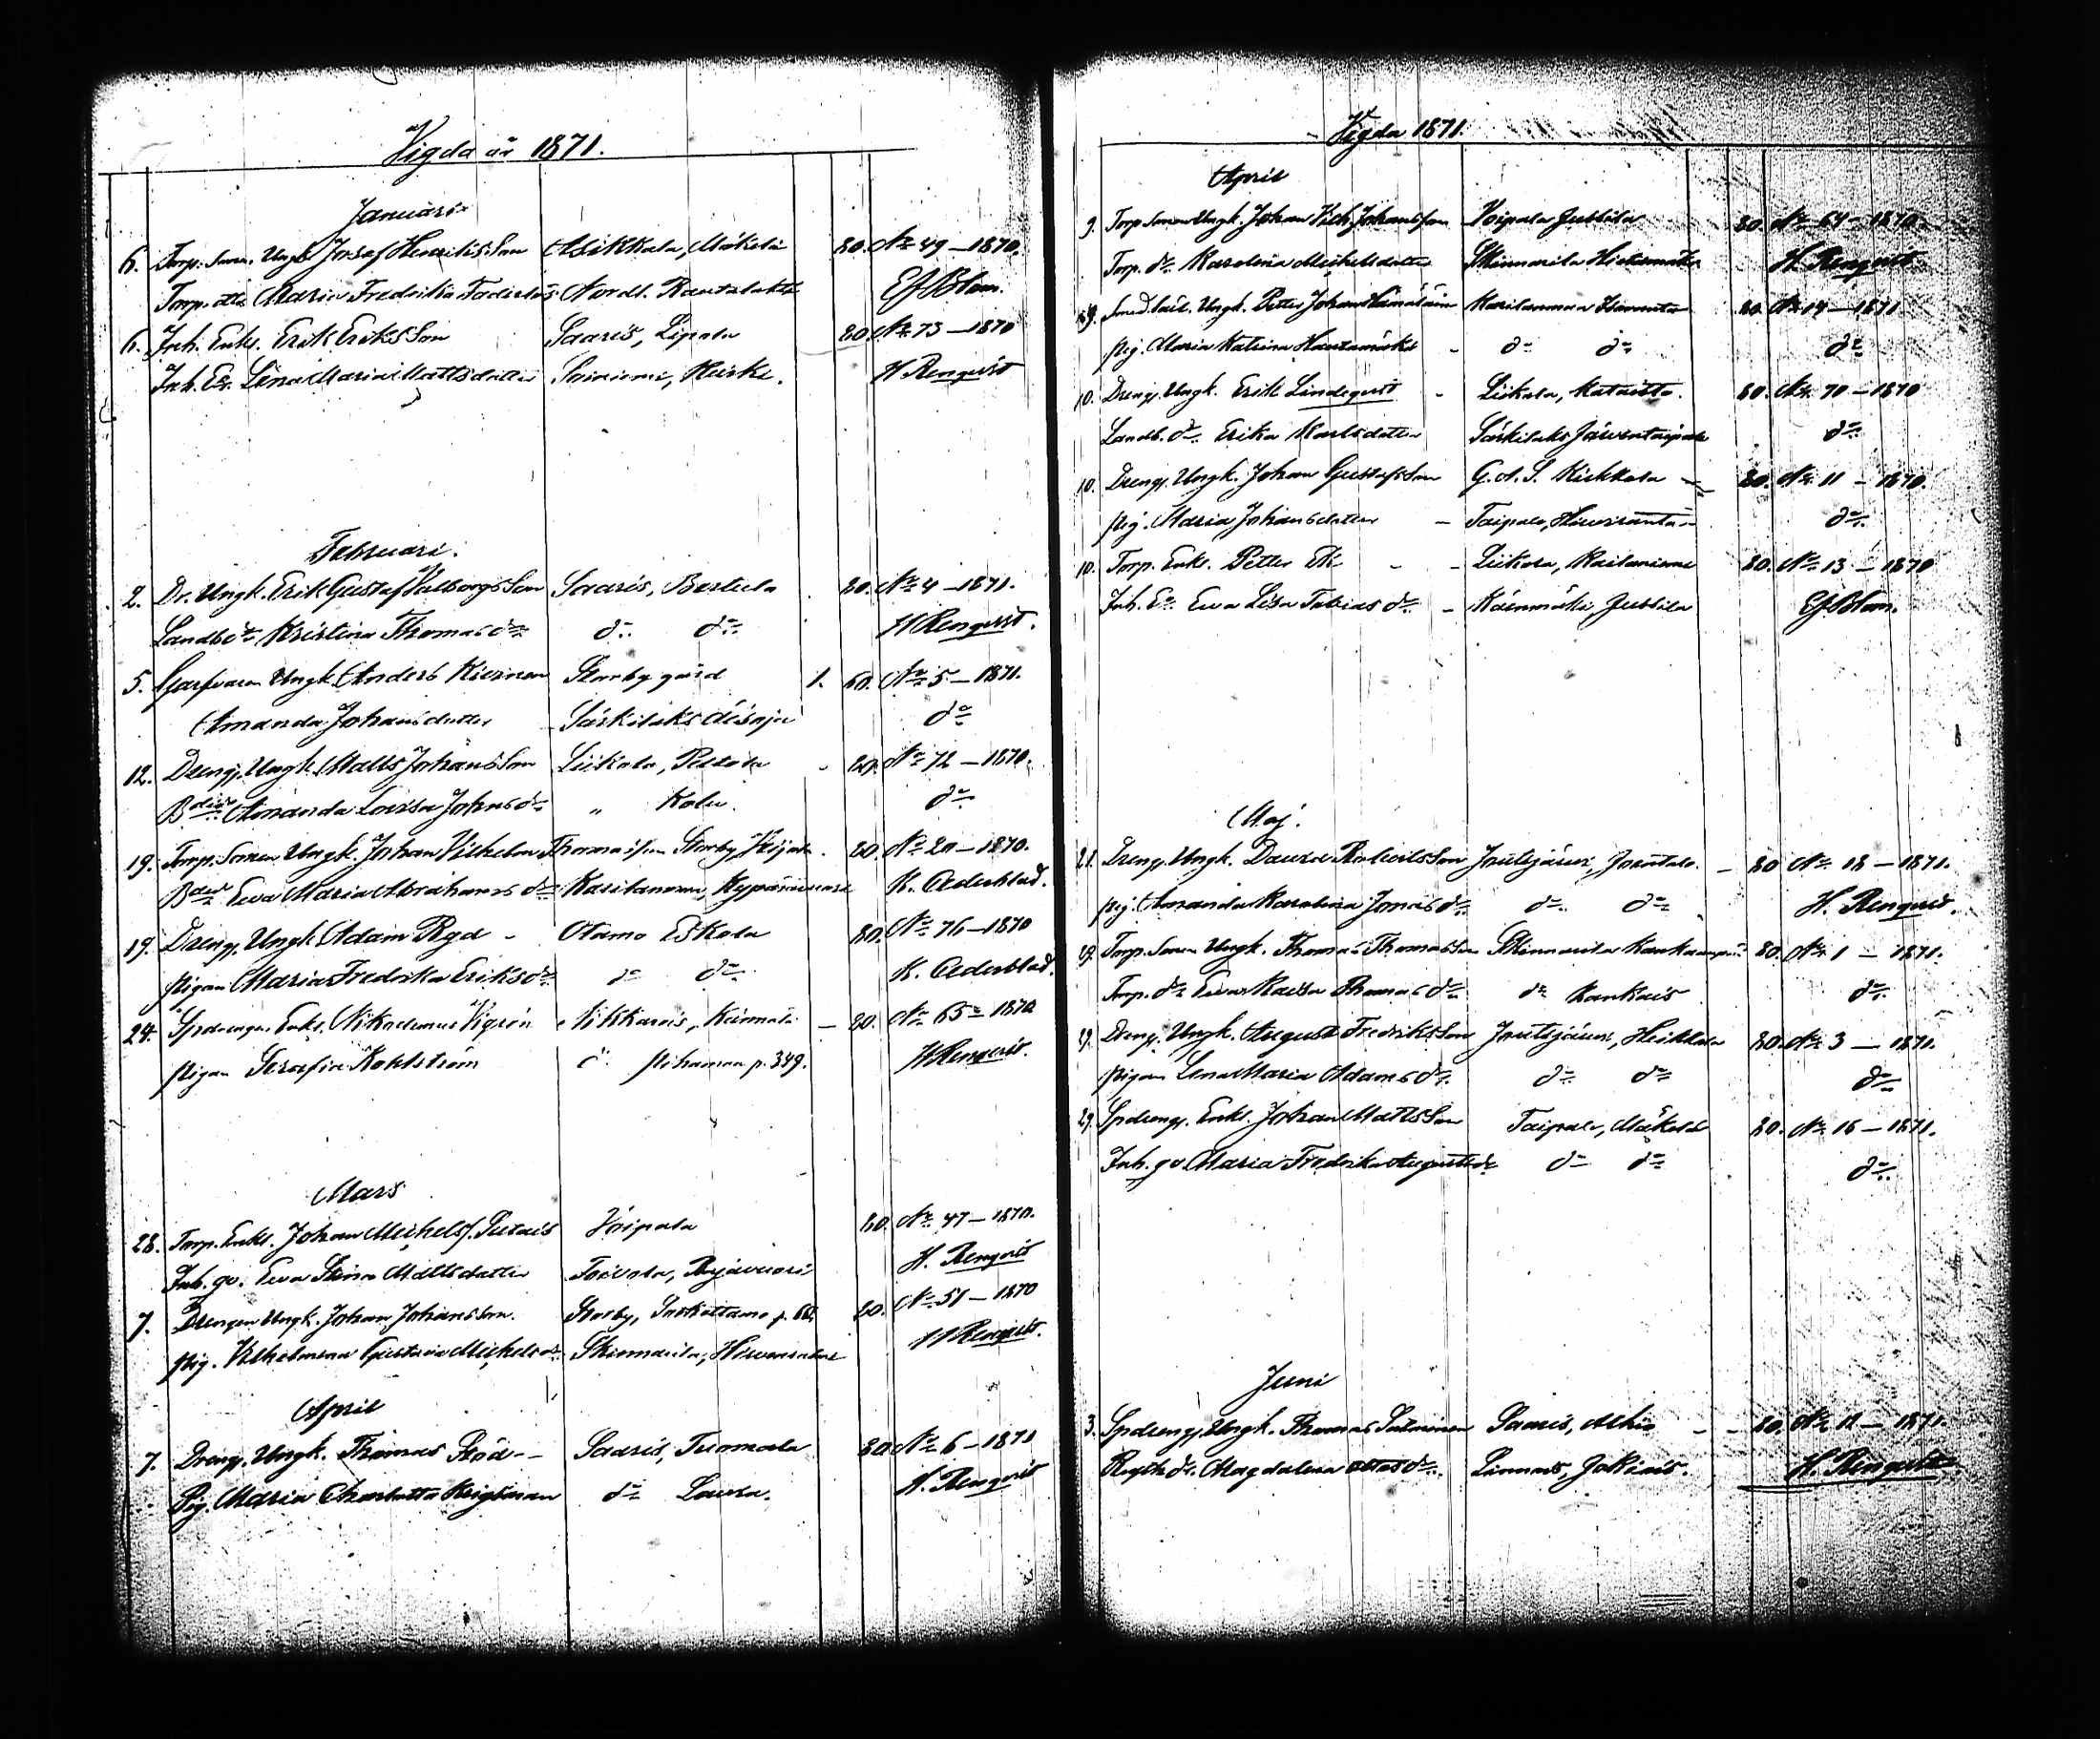 Vigda år 1871.
Januari
6. Torp. Sonen. Ungk Josef Henriksson Asikkala, Mäkelä 80. No 49 – 1870.
Torp. Maria Fredrika Nordl. Ef Blom.
6. Inh. Enkl. Erik Eriksson Saaris, Lipala 80 No 73 – 1870
Inh. Ea. Lena Maria Mattsdotter H Renqvist
Februari.
2. Dr. Ungk. Erik Gustaf Valborgsson Saaris, Bertula 80. No 4 – 1871.
Landb dr. Kristina Thomasdr do do H Renqvist.
5. Ungk. Anders Kivinen Storby gård 1. 60. No 5 – 1871.
Amanda Johansdotter Särkilaks do
12. Dreng. Ungk. Matts Johansson Liikala, 80. No 72 – 1870.
Amanda Lovisa Johansdr " Kolu. do
19. Torp. Sonen Ungk. Johan Vilhelm Thomasson Storby, 80. No 20 – 1870.
Eva Maria Abrahamsdr Karilanmaa, K. Cederblad.
19. Dreng. Ungk Adam Ryd – Otamo Eskola 80. No 76 – 1870
Pigan Maria Fredrika Eriksdr do do K. Cederblad.
24. Enkl. Nikodemus Vigrén Nikkarois, – 80. No 65 – 1870
Pigan Serafia Kohlström do Pihamaa p. 349. H Renqvist.
Mars
28. Torp. Enkl. Johan Michelss. Voipala 80. No 47 – 1870.
Inh. gv. Eva Stina Mattsdotter Toivola, H. Renqvist
7. Drengen Ungk. Johan Johansson. Storby, 80. No 51 – 1870
Pig. Vilhelmina Gustava Michelsdr Skinnarila, H Renqvist.
April
7. Dreng. Ungk. Thomas Stöd – – Saaris, Tuomola 80 No 6 – 1871
Pig. Maria Charlotta Krigsman do Laura. H. Renqvist
Vigda 1871.
April
9. Torp Sonen Ungk. Johan Vilh. Johansson Voipala Jussila 80. No 64 – 1870.
Torp. dr. Karolina Michelsdotter Skinnarila H. Renqvist
Ungk. Petter Johan Hämäläinen Karilanmaa 80. No 14 – 1871
Pig. Maria Katrina – do do do
10. Dreng. Ungk. Erik Lindeqvist – Liikala, Mataisto. 80. No 70 – 1870
Landb. dr. Erika Karlsdotter Särkilaks Järventaipale do
10. Dreng. Ungk. Johan Gustafsson G. A. S. Kirkkola 80. No 11 – 1870.
Pig. Maria Johansdotter – Taipale, do
10. Torp. Enkl. Petter Ek – – Liikola, 80. No 13 – 1870
Inh. Ea. Eva Lisa Tobiasdr – Käenmäki, Jussila Ef Blom.
Maj.
21. Dreng. Ungk. David Joutsjärvi, – 80 No 18 – 1871.
Pig. Amanda Karolina Jonasdr do do H. Renqvist.
29. Torp. Sonen Ungk. Thomas Thomasson Skinnarila 80. No 1 – 1871.
Torp. dr Eva Kaisa Thomasdr do Kankais do
29. Dreng. Ungk. August Fredriksson Joutsjärvi, Heikkola 80. No 3 – 1871.
Pigan Lena Maria Adamsdr do do do
29. Spdreng. Enkl. Johan Mattsson Taipale, Mäkelä 80. No 16 – 1871.
Inh. gv. Maria Fredrika Augustsdr do do do
Juni
3. Spdreng. Ungk. Thomas Salminen Saaris, Ahlis – – 80. No 12 – 1871.
Magdalena Linnais, Jokiais. H. Renqvist